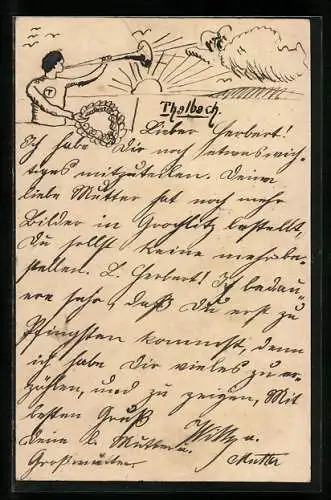 T
Thalbach.
Lieber Herbert!
Ich habe Dir noch etwas wich-
tiges mitzuteilen. Deine
liebe Mutter hat noch mehr
Bilder in Grochlitz bestellt,
Du sollst keine mehr be-
stellen. L. Herbert! Ich bedau-
ere sehr, daß Du erst zu
Pfingsten kommst, denn
ich habe Dir vieles zu er-
zählen, und zu zeigen, Mit
besten Gruß
Deine l. Mutter u. Willy u.
Großmutter. Mutter